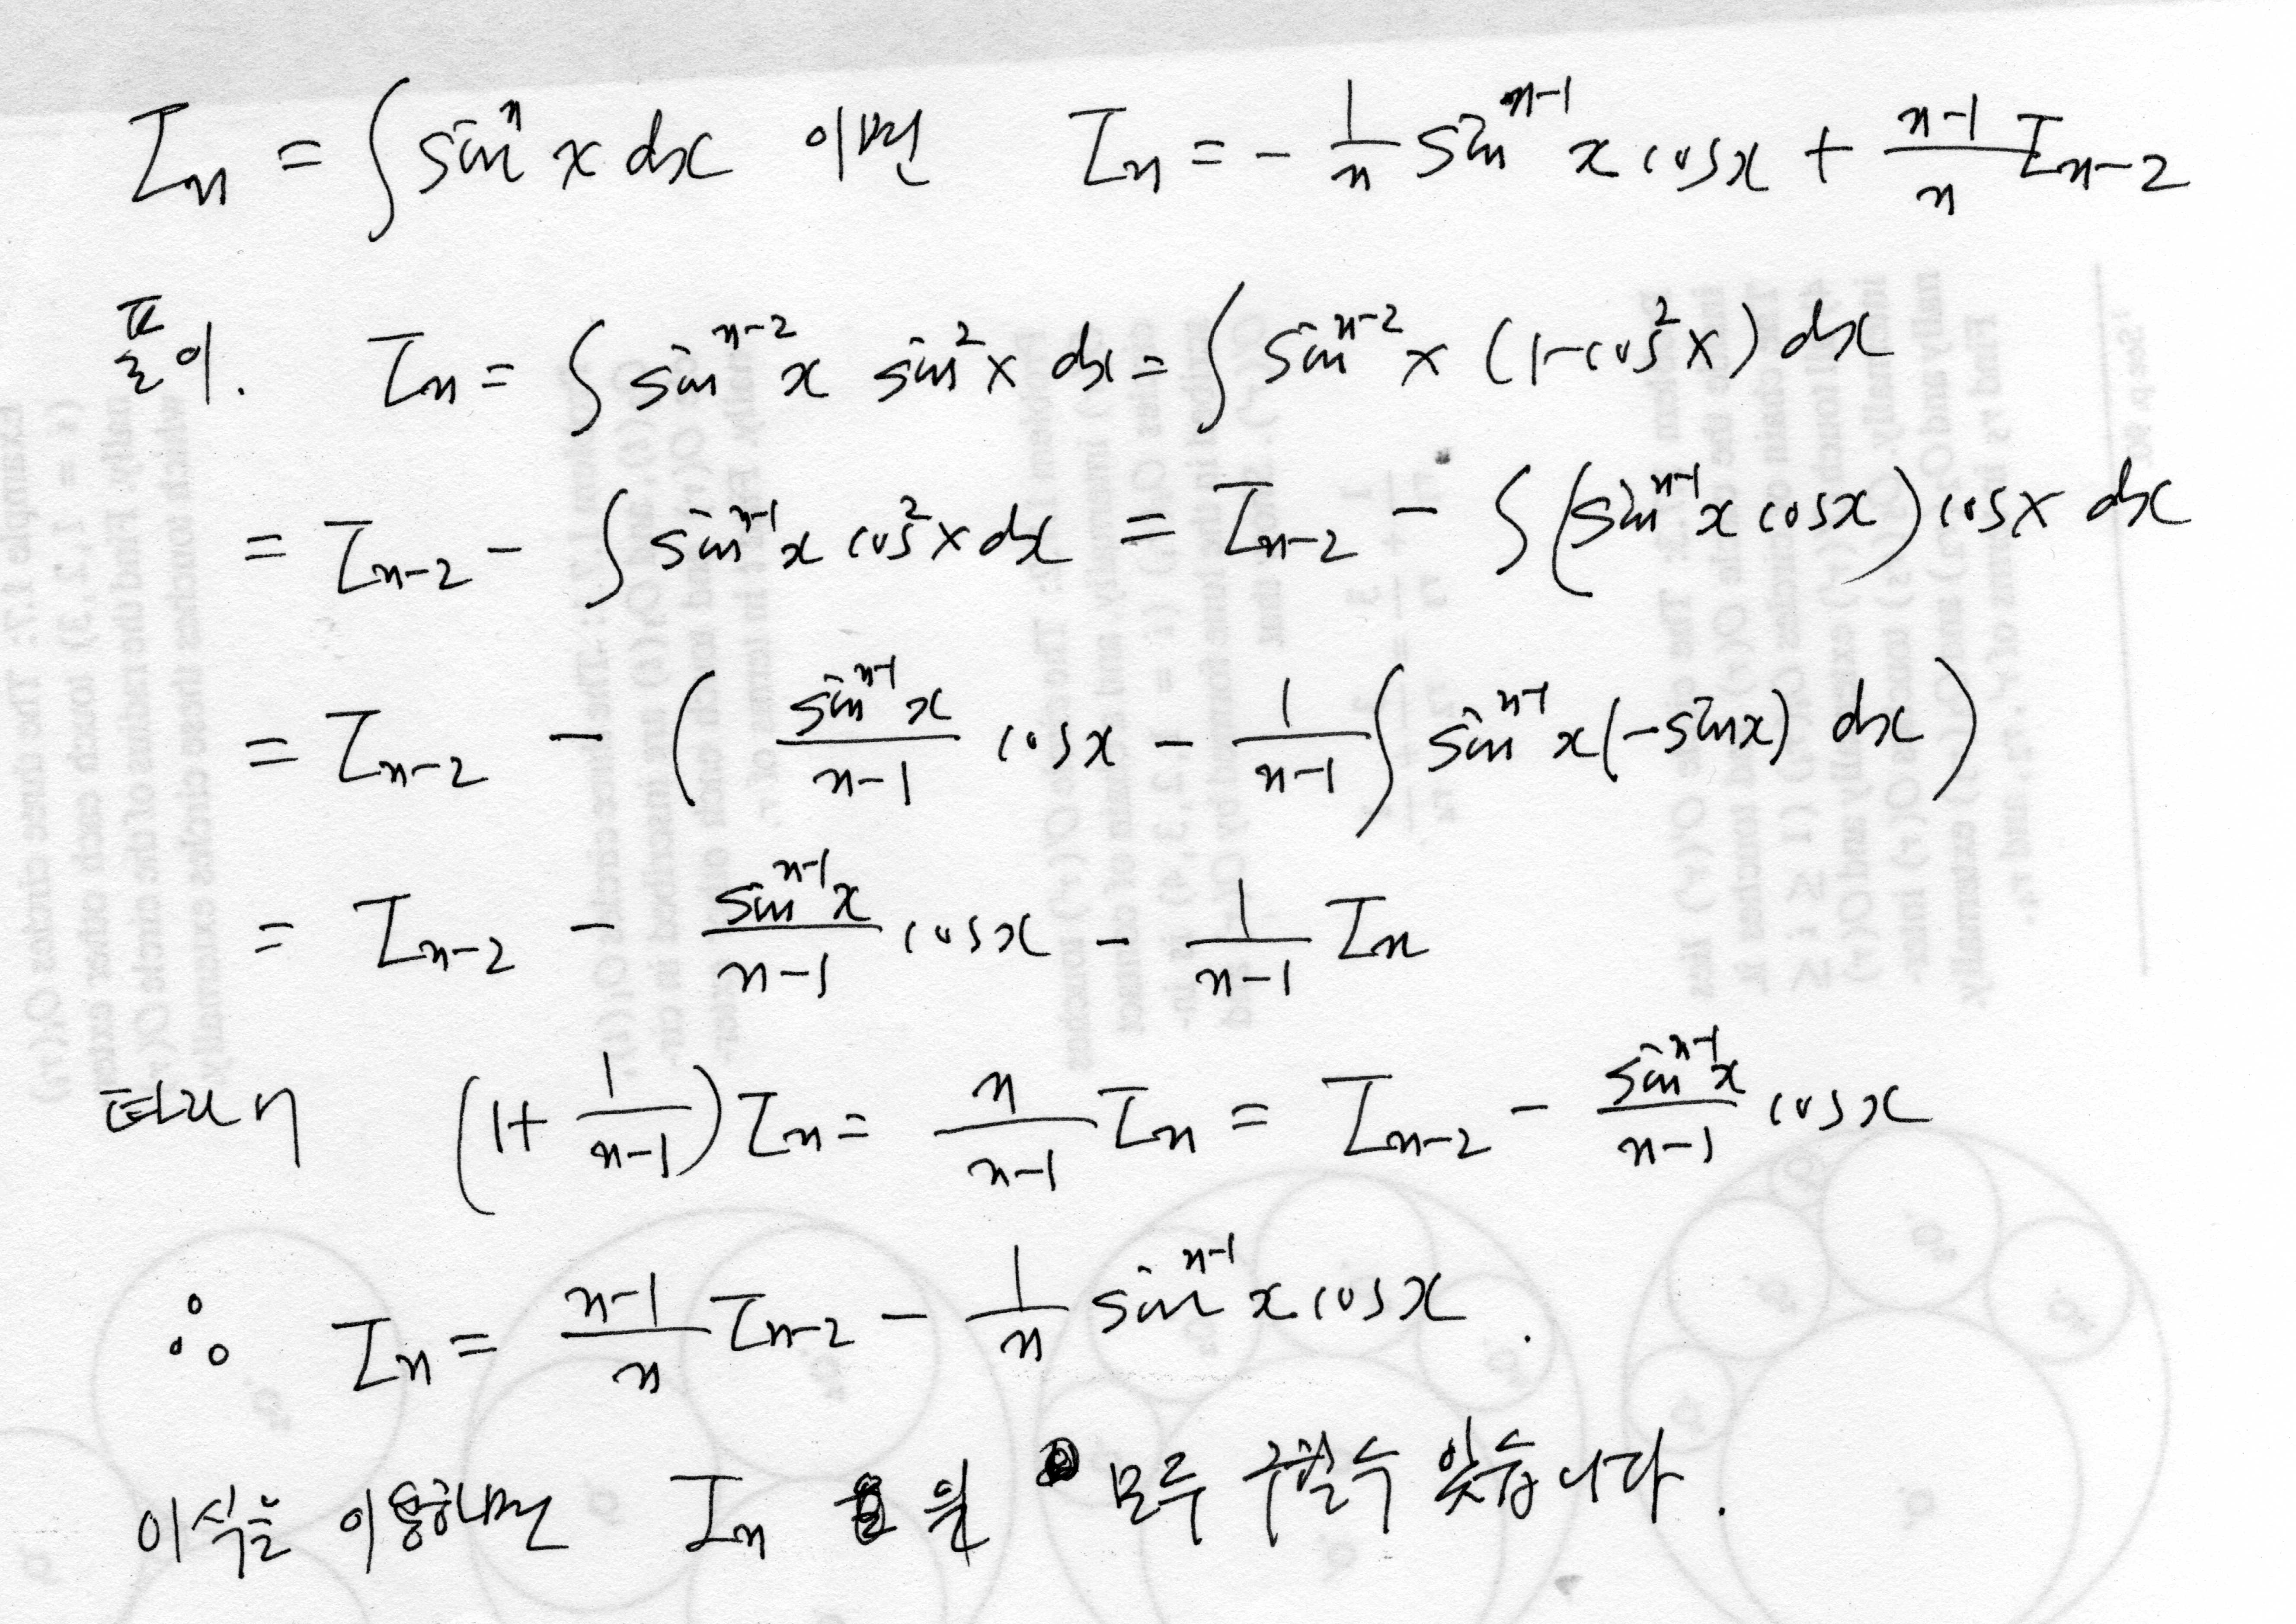 Iₙ = ∫ sinⁿ x dx 이면 Iₙ = - 1/n sinⁿ⁻¹ x cosx + (n-1)/n Iₙ₋₂
풀이. Iₙ = ∫ sinⁿ⁻² x sin² x dx = ∫ sinⁿ⁻² x (1-cos² x) dx
= Iₙ₋₂ - ∫ sinⁿ⁻¹ x cos² x dx = Iₙ₋₂ - ∫ (sinⁿ⁻¹ x cosx) cosx dx
= Iₙ₋₂ - ( (sinⁿ⁻¹ x)/(n-1) cosx - 1/(n-1) ∫ sinⁿ⁻¹ x (-sinx) dx )
= Iₙ₋₂ - (sinⁿ⁻¹ x)/(n-1) cosx - 1/(n-1) Iₙ
따라서 (1 + 1/(n-1)) Iₙ = n/(n-1) Iₙ = Iₙ₋₂ - (sinⁿ⁻¹ x)/(n-1) cosx
∴ Iₙ = (n-1)/n Iₙ₋₂ - 1/n sinⁿ⁻¹ x cosx .
이식을 이용하면 Iₙ 을 모두 구할수 있습니다.